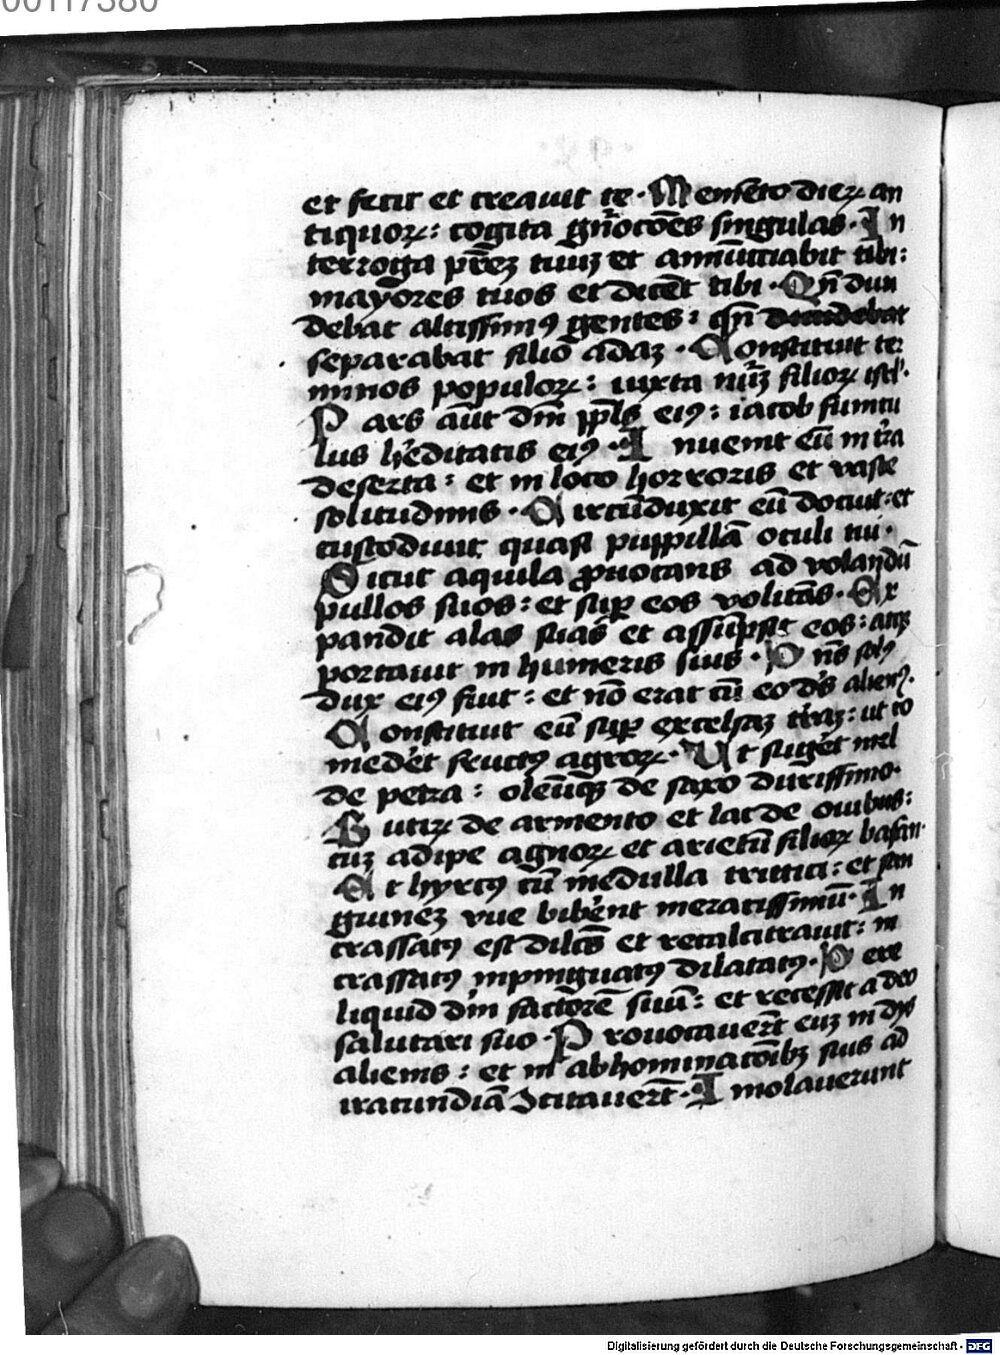 00117380
et fecit et creauit te. Memento dieꝝ an
tiquoꝝ: cogita gn̄ac̄ōes singulas. In
terroga pr̄eꝫ tuuꝫ et annūciabit tibi:
mayores tuos et dicēt tibi. Qn̄ diui
debat altissimꝰ gentes: qn̄ diuidebat
separabat filio adaꝫ. Constituit ter
minos populoꝝ: iuxta nūꝫ filioꝝ isrl'.
Pars aūt dn̄i ppl̄s eiꝰ: iacob funicu
lus h'editatis eiꝰ. Inuenit eū in tr̄a
deserta: et in loco horroris et vaste
solitudinis. Circūduxit eū docuit: et
custodiuit quasi puppillā oculi sui.
Sicut aquila ꝓuocans ad volandū
pullos suos: et suꝑ eos volitās. Ex
pandit alas suas et assūpsit eos: atqꝫ
portauit in humeris suis. Dn̄s solꝰ
dux eiꝰ fuit: et nō erat cū eo de's alienꝰ.
Constituit eū suꝑ excelsaꝫ tr̄aꝫ: ut co
med'et fructꝰ agroꝝ. Ut sug'et mel
de petra: oleūqꝫ de saxo durissimo.
Butiꝝ de armento et lac de ouibus:
cuꝫ adipe agnoꝝ et arietū filioꝝ basan.
Et hyrcꝰ cū medulla tritici: et san
guineꝫ vue bib'ent meracissimū. In
crassatꝰ est dilc̄s et recalcitrauit: in
crassatꝰ inpinguatꝰ dilatatꝰ. Dere
liquid dm̄ factorē suū: et recessit a deo
salutari suo. Prouocauer̄t euꝫ in dys
alienis: et in abhominac̄oibꝫ suis ad
iracundiā ꝯcitauer̄t. Imolauerunt
Digitalisierung gefördert durch die Deutsche Forschungsgemeinschaft - DFG